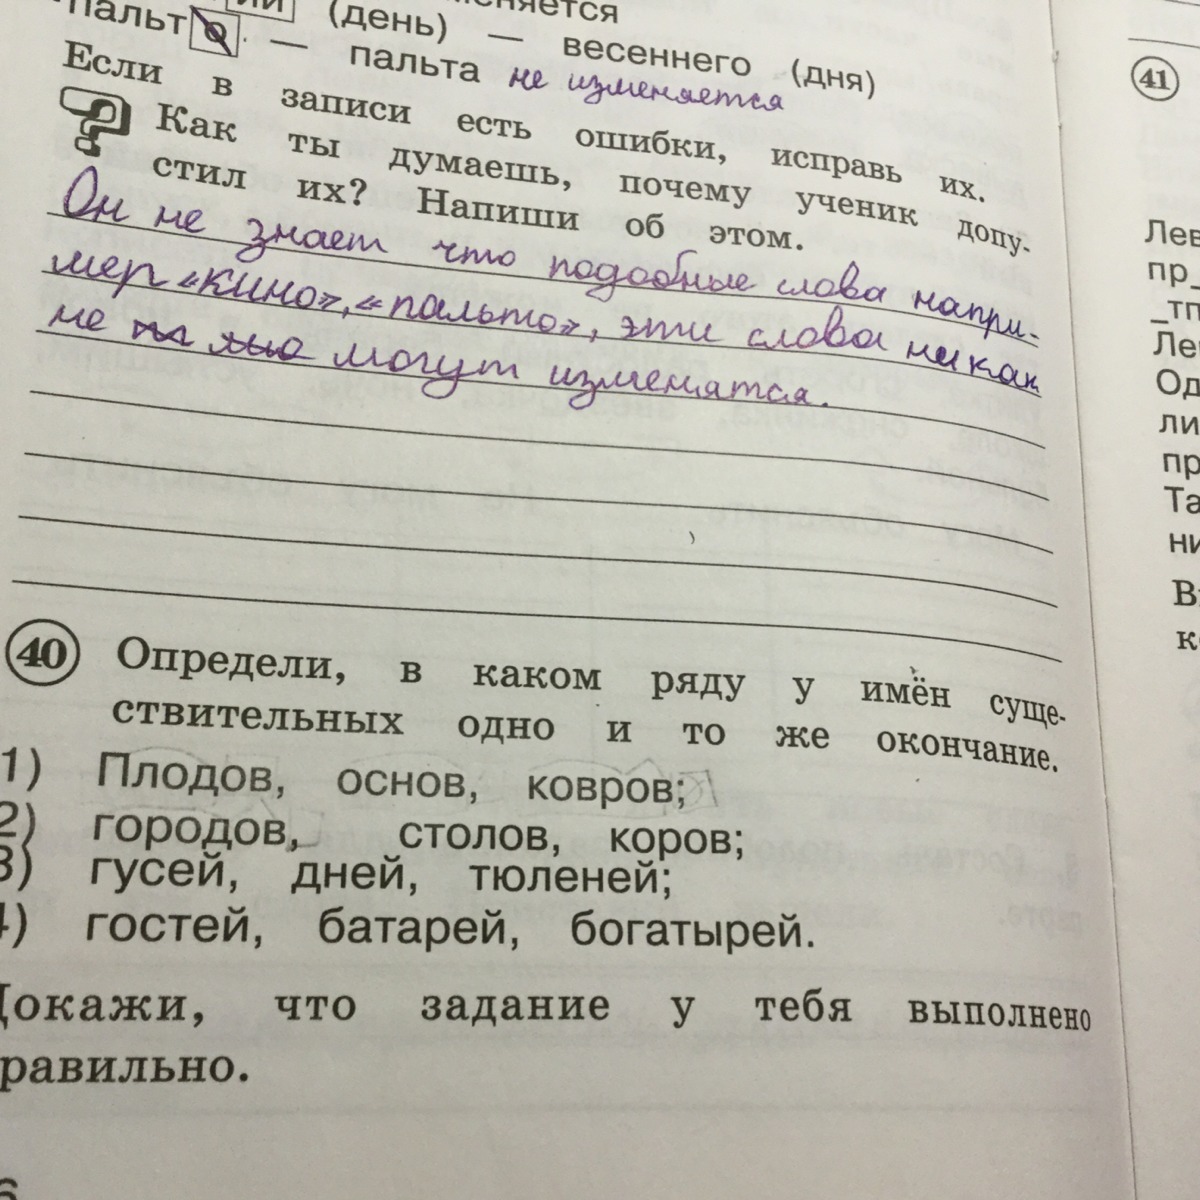 (день) — весеннего (дня)
пальто — пальта не изменяется
Если в записи есть ошибки, исправь их.
Как ты думаешь, почему ученик допу-
стил их? Напиши об этом.
Он не знает что подобные слова напри-
мер «кино», «пальто», эти слова никак
не могут изменятся.
40 Определи, в каком ряду у имён суще-
ствительных одно и то же окончание.
1) Плодов, основ, ковров;
2) городов, столов, коров;
3) гусей, дней, тюленей;
4) гостей, батарей, богатырей.
Докажи, что задание у тебя выполнено
равильно.
6
41
Лев
пр_
_тп
Ле
Од
ли
пр
Та
ни
В
к